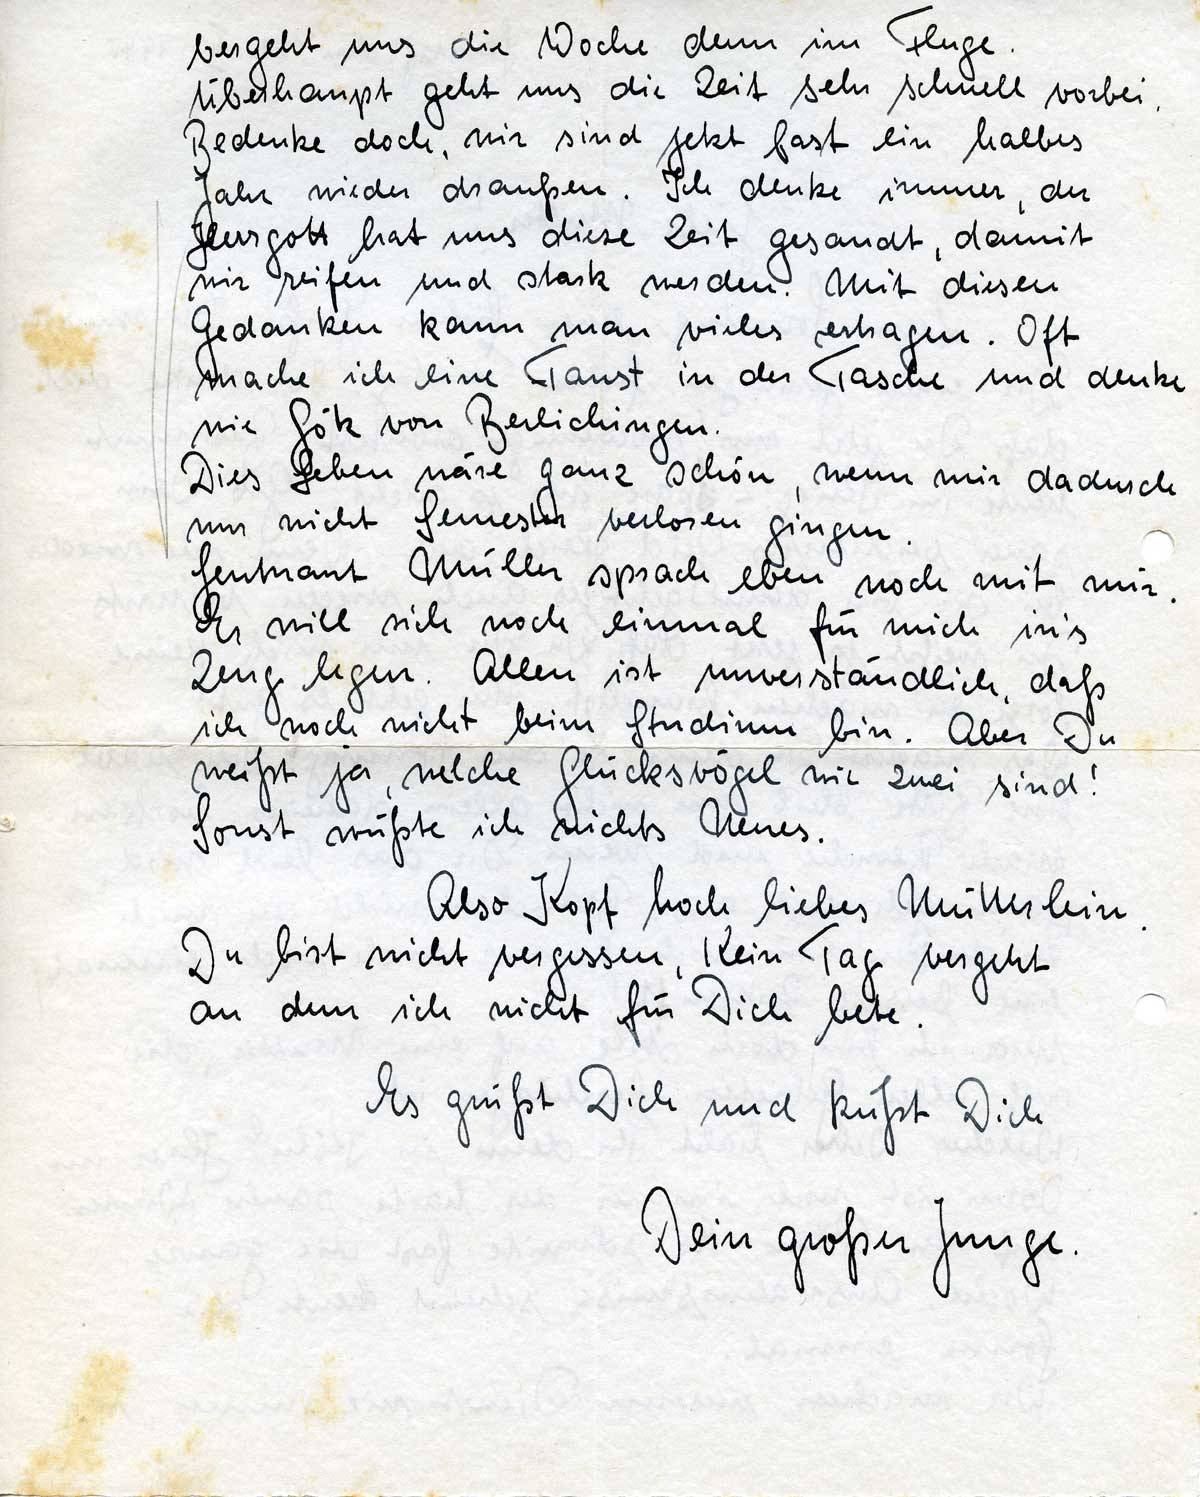 vergeht uns die Woche dann im Fluge.
Überhaupt geht uns die Zeit sehr schnell vorbei.
Bedenke doch, wir sind jetzt fast ein halbes
Jahr wieder draußen. Ich denke immer, der
Herrgott hat uns diese Zeit gesandt, damit
wir reifen und stark werden. Mit diesen
Gedanken kann man vieles ertragen. Oft
mache ich eine Faust in der Tasche und denke
wie Götz von Berlichingen.
Dies Leben wäre ganz schön, wenn mir dadurch
nur nicht Semester verloren gingen.
Leutnant Müller sprach eben noch mit mir.
Er will sich noch einmal für mich in's
Zeug legen. Allen ist unverständlich, daß
ich noch nicht beim Studium bin. Aber Du
weißt ja, welche Glücksvögel wir zwei sind!
Sonst wüßte ich nichts Neues.
Also Kopf hoch liebes Mütterlein.
Du bist nicht vergessen, Kein Tag vergeht
an dem ich nicht für Dich bete.
Es grüßt Dich und küßt Dich
Dein großer Junge.